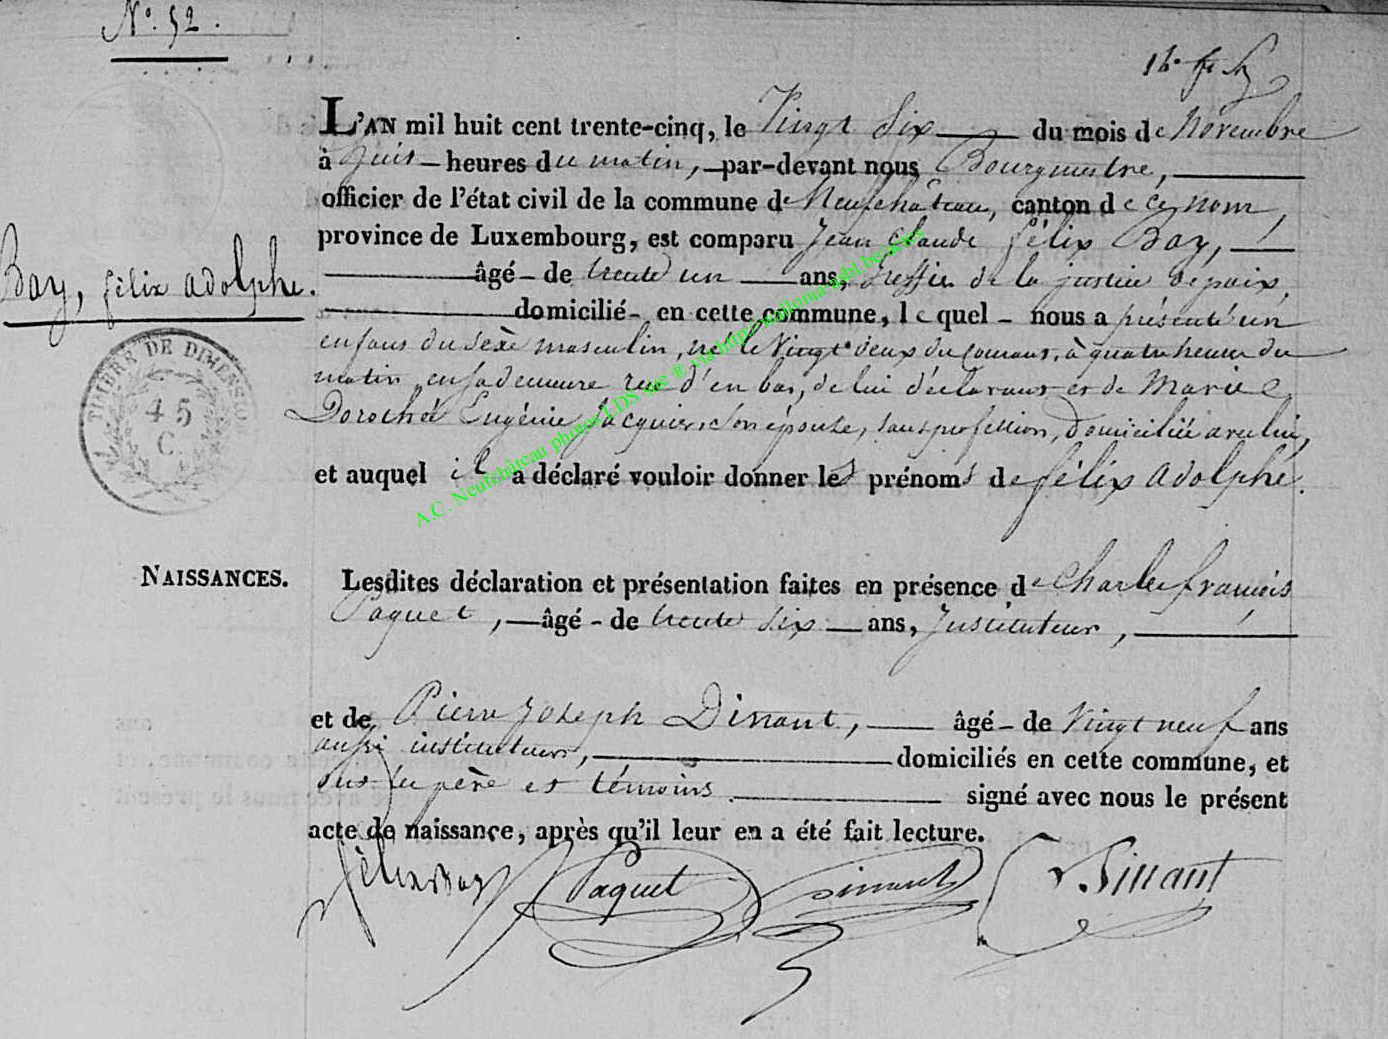 N°. 52.
L'AN mil huit cent trente-cinq, le Vingt Six du mois de Novembre
à huit heures du matin, par-devant nous Bourgmestre,
officier de l'état civil de la commune de Neufchâteau, canton de ce nom,
province de Luxembourg, est comparu Jean Claude félix Bay,
âgé de trente un ans, Greffier de la justice de paix,
domicilié en cette commune, lequel nous a présenté un
enfant du sèxe masculin, né le Vingt deux du courant, à quatre heures du
matin, en sa demeure rue d'en bas, de lui déclarant et de Marie
Dorothée Eugénie Jacquier, son épouse, sans profession, domiciliée avec lui,
et auquel il a déclaré vouloir donner les prénoms de félix adolphe.
Bay, félix adolphe.
TIMBRE DE DIMENSION
45
C.
NAISSANCES.
Lesdites déclaration et présentation faites en présence de Charles françois
Paquet, âgé de trente six ans, Instituteur,
et de Pierre Joseph Dinant, âgé de Vingt neuf ans
aussi instituteur, domiciliés en cette commune, et
ont les père et témoins signé avec nous le présent
acte de naissance, après qu'il leur en a été fait lecture.
félix Bay Paquet Dinant
A.C. Neufchâteau photos LDS site ® via http://walloniasbl.be/actes